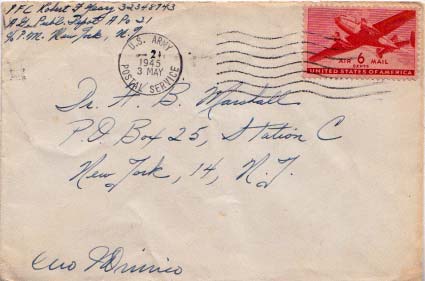 PFC Robert F Geary 32348943
APO 21
c/o P.M. New York, N.Y.
U.S. ARMY
2
1945
3 MAY
POSTAL SERVICE
AIR 6 MAIL
CENTS
UNITED STATES OF AMERICA
Dr. A. B. Marshall
P.O. Box 25, Station C
New York, 14, N.Y.